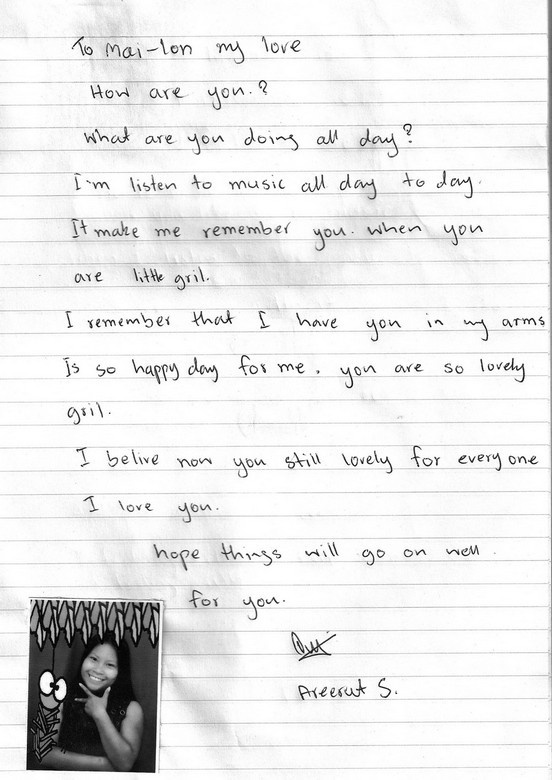 To Mai-lon my love
How are you.?
What are you doing all day?
I'm listen to music all day to day.
It make me remember you. when you
are little gril.
I remember that I have you in my arms
Is so happy day for me. you are so lovely
gril.
I belive now you still lovely for every one
I love you.
hope things will go on well.
for you.
Areerut S.